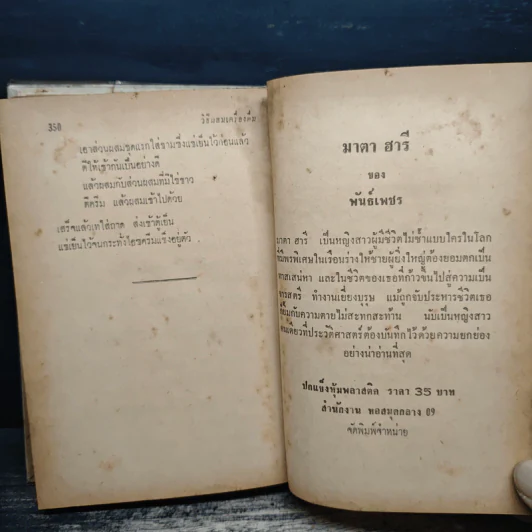 350
วิธีผสมเครื่องดื่ม
เอาส่วนผสมชุดแรกใส่ชามซึ่งแช่เย็นไว้ก่อนแล้ว
ตีให้เข้ากันเป็นอย่างดี
แล้วผสมกับส่วนผสมที่มีไข่ขาว
ตีครีม แล้วผสมเข้าไปด้วย
เสร็จแล้วเทใส่ถาด ส่งเข้าตู้เย็น
แช่เย็นไว้จนกระทั่งไอซครีมแข็งอยู่ตัว
มาตา ฮารี
ของ
พันธ์เพชร
มาตา ฮารี เป็นหญิงสาวผู้มีชีวิตไม่ซ้ำแบบใครในโลก
มีพรพิเศษในเรือนร่างให้ชายผู้ยิ่งใหญ่ต้องยอมตกเป็น
ทาสเสน่หา และในชีวิตของเธอที่ก้าวขึ้นไปสู่ความเป็น
จารสตรี ทำงานเยี่ยงบุรุษ แม้ถูกจับประหารชีวิตเธอ
ก็ยิ้มกับความตายไม่สะทกสะท้าน นับเป็นหญิงสาว
คนเดียวที่ประวัติศาสตร์ต้องบันทึกไว้ด้วยความยกย่อง
อย่างน่าอ่านที่สุด
ปกแข็งหุ้มพลาสติค ราคา 35 บาท
สำนักงาน หอสมุดกลาง 09
จัดพิมพ์จำหน่าย